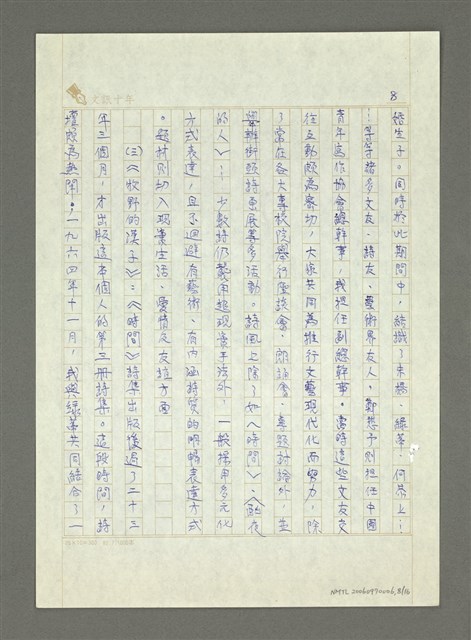 8
文訊十年
婚生子。同時於此期間中,結識了朱橋、綠蒂、何恭上…
…等等諸多文友、詩友、藝術界友人。鄭愁予則擔任中國
青年寫作協會總幹事,我擔任副總幹事。當時這些文友交
往互動頗為密切,大家共同為推行文藝現代化而努力,除
了常在各大專校院舉行座談會、朗誦會、專題討論外,並
舉辦街頭詩畫展等多活動。詩風之除了如〈時間〉:〈臥夜
的人〉…少數詩仍襲用超現實手法外,一般採用多元化
方式表達,且不迴避有藝術、有內涵詩質的明暢表達方式
。題材則切入現實生活、愛情及友誼方面
(三)《牧野的漢子》:《時間》詩集出版後過了二十三
年三個月,才出版這本個人的第三冊詩集。這段時間,詩
壇頗為熱鬧。一九六四年十一月,我與綠蒂共同結合了一
NMTL 20060970006, 8/16